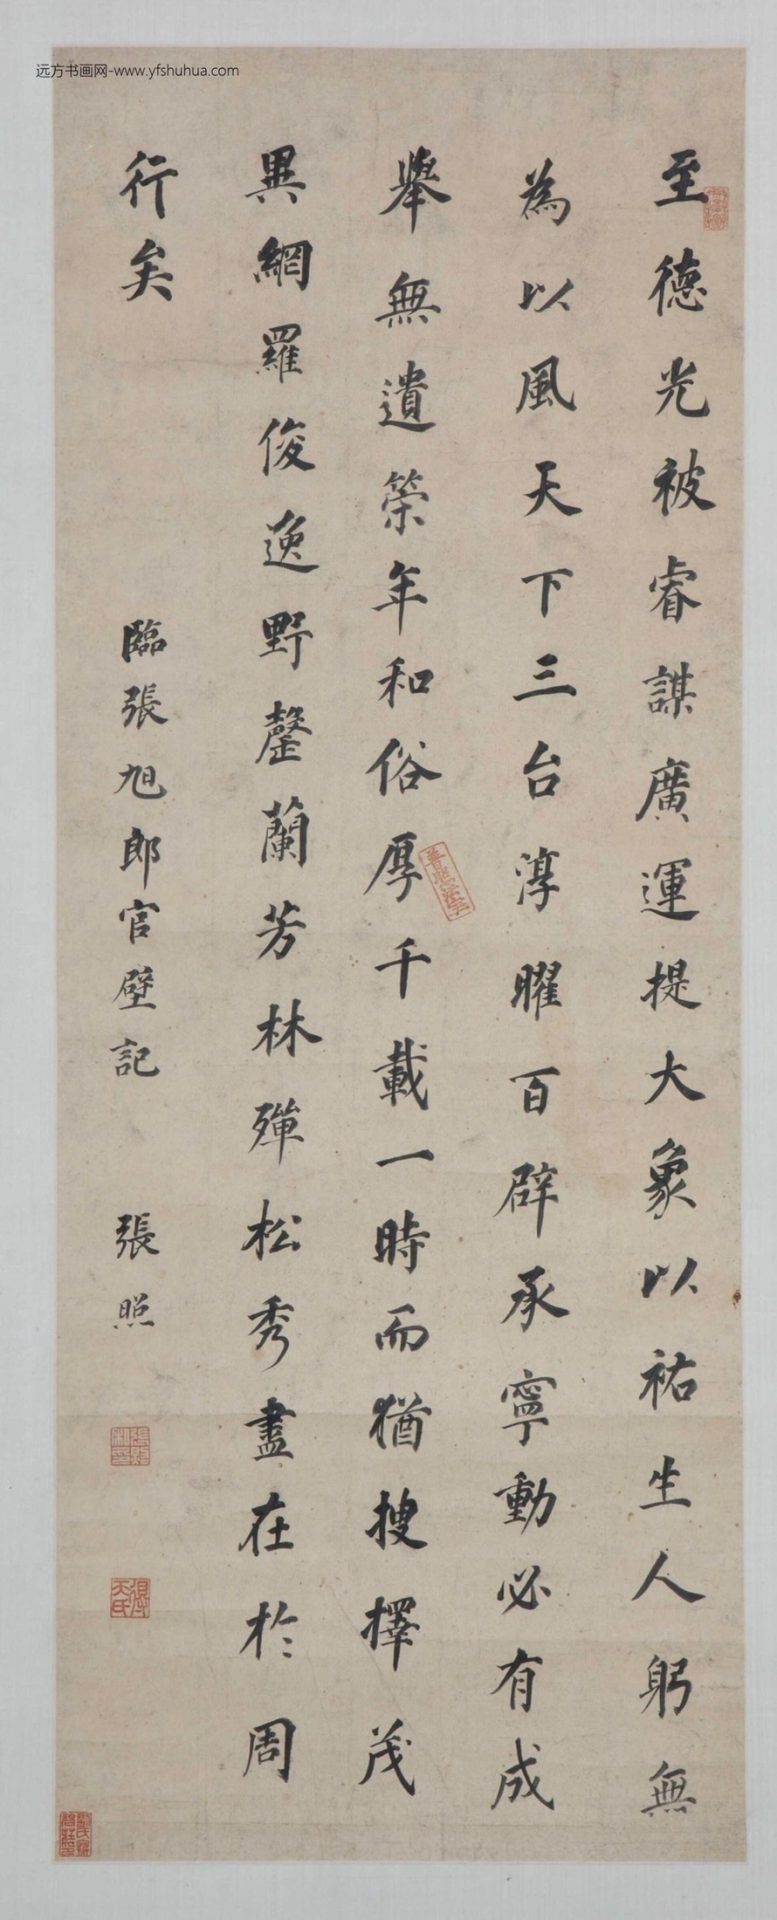 远方书画网-www.yfshuhua.com
至德光被睿謀廣運提大象以祐生人躬無
為以風天下三台淳曜百辟承寧動必有成
舉無遺策年和俗厚千載一時而猶搜擇茂
異網羅俊逸野罄蘭芳林殫松秀盡在於周
行矣
臨張旭郎官壁記
張照
張照之印
得天氏